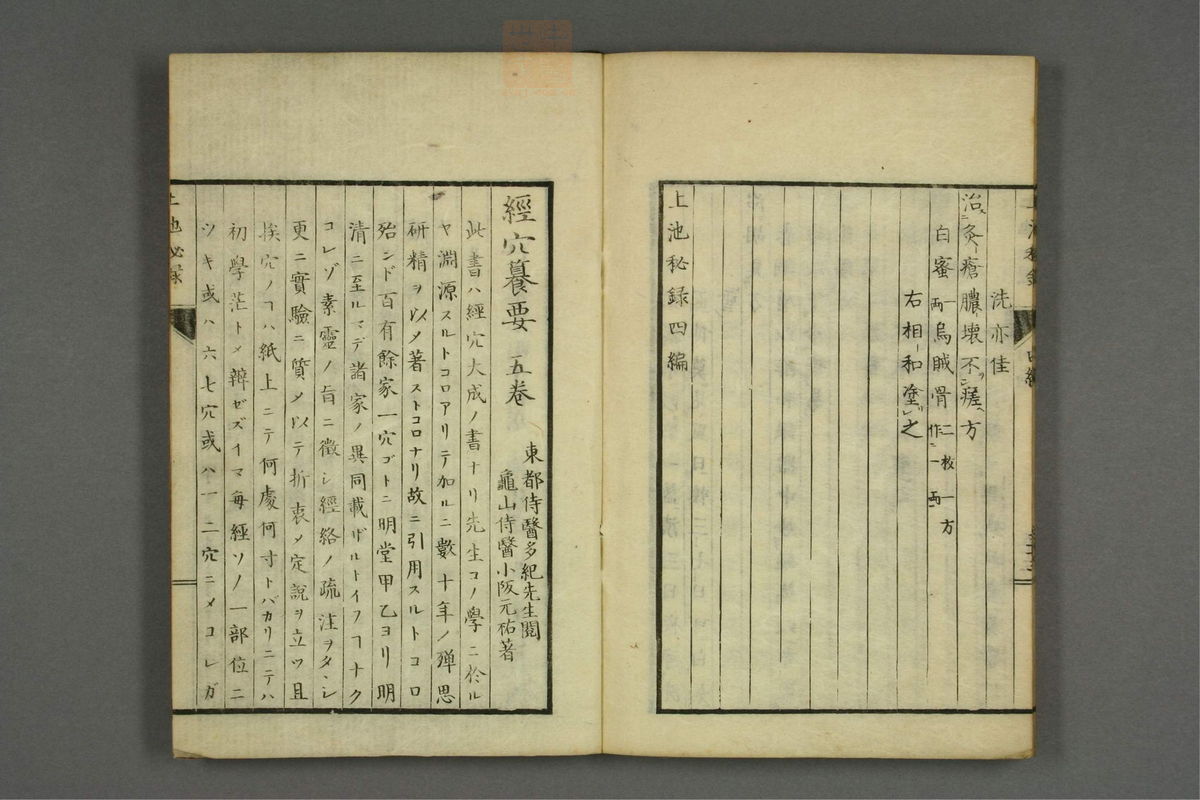 洗亦佳
治灸瘡膿壊不瘥方
白蜜一両烏賊骨二枚一方作一両
右相和塗之
上池秘録四編
經穴纂要 五巻
東都侍醫多紀先生閲
龜山侍醫小阪元祐著
此書ハ經穴大成ノ書ナリ先生コノ學ニ於ル
ヤ淵源スルトコロアリテ加ルニ數十年ノ殫思
研精ヲ以メ著ストコロナリ故ニ引用スルトコロ
殆ンド百有餘家一穴ゴトニ明堂甲乙ヨリ明
清ニ至ルマデ諸家ノ異同載ザルトイフヿナク
コレゾ素靈ノ旨ニ徴シ經絡ノ疏注ヲタヽシ
更ニ實驗ニ質メ以テ折衷メ定説ヲ立ツ且
挨穴ノヿハ紙上ニテ何處何寸トバカリニテハ
初學茫トメ辨ゼズイマ毎經ソノ一部位ニ
ツキ或ハ六七穴或ハ一二穴ニメコレガ
上池秘録